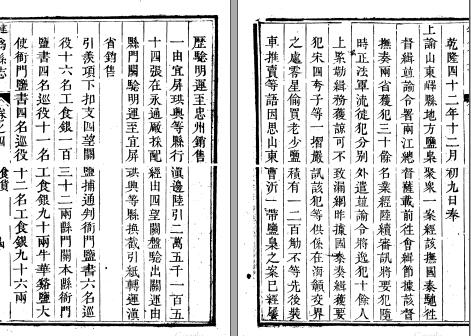 乾隆四十二年十二月初九日奉
上諭山東嶧縣地方鹽梟聚眾一案經該撫國泰馳往
督緝並諭令署兩江總督薩載前往會緝節據該督
撫奏兩省獲犯三十餘名業經陸續審訊將要犯隨
時正法軍流徒犯分別外遣並諭令將逸犯十餘人
上緊勒緝務獲諒可不致漏網昨據國泰奏緝獲要
犯宋四夸子等一摺嚴訊該犯等供係在海交界
之處零星偷買老少鹽積有一二百觔不等先後裝
車推賣等語因思山東曹沂一帶鹽梟之案已經屢
歷驗明運至忠州銷售
一由宜屏珙興等縣行滇邊陸引二萬五千一百五
十四張在永通廠採配經由四望關盤驗出關運由
縣門關驗明運至宜屏珙興等縣換截引紙轉運滇
省銷售
引張項下扣支四望關鹽捕通判衙門鹽書六名巡
役十六名工食銀一百三十二兩縣門關本縣衙門
鹽書四名巡役十一名工食銀九十兩牛華谿鹽大
使衙門鹽書四名巡役十二名工食銀九十六兩
縣志
卷之四
食貨